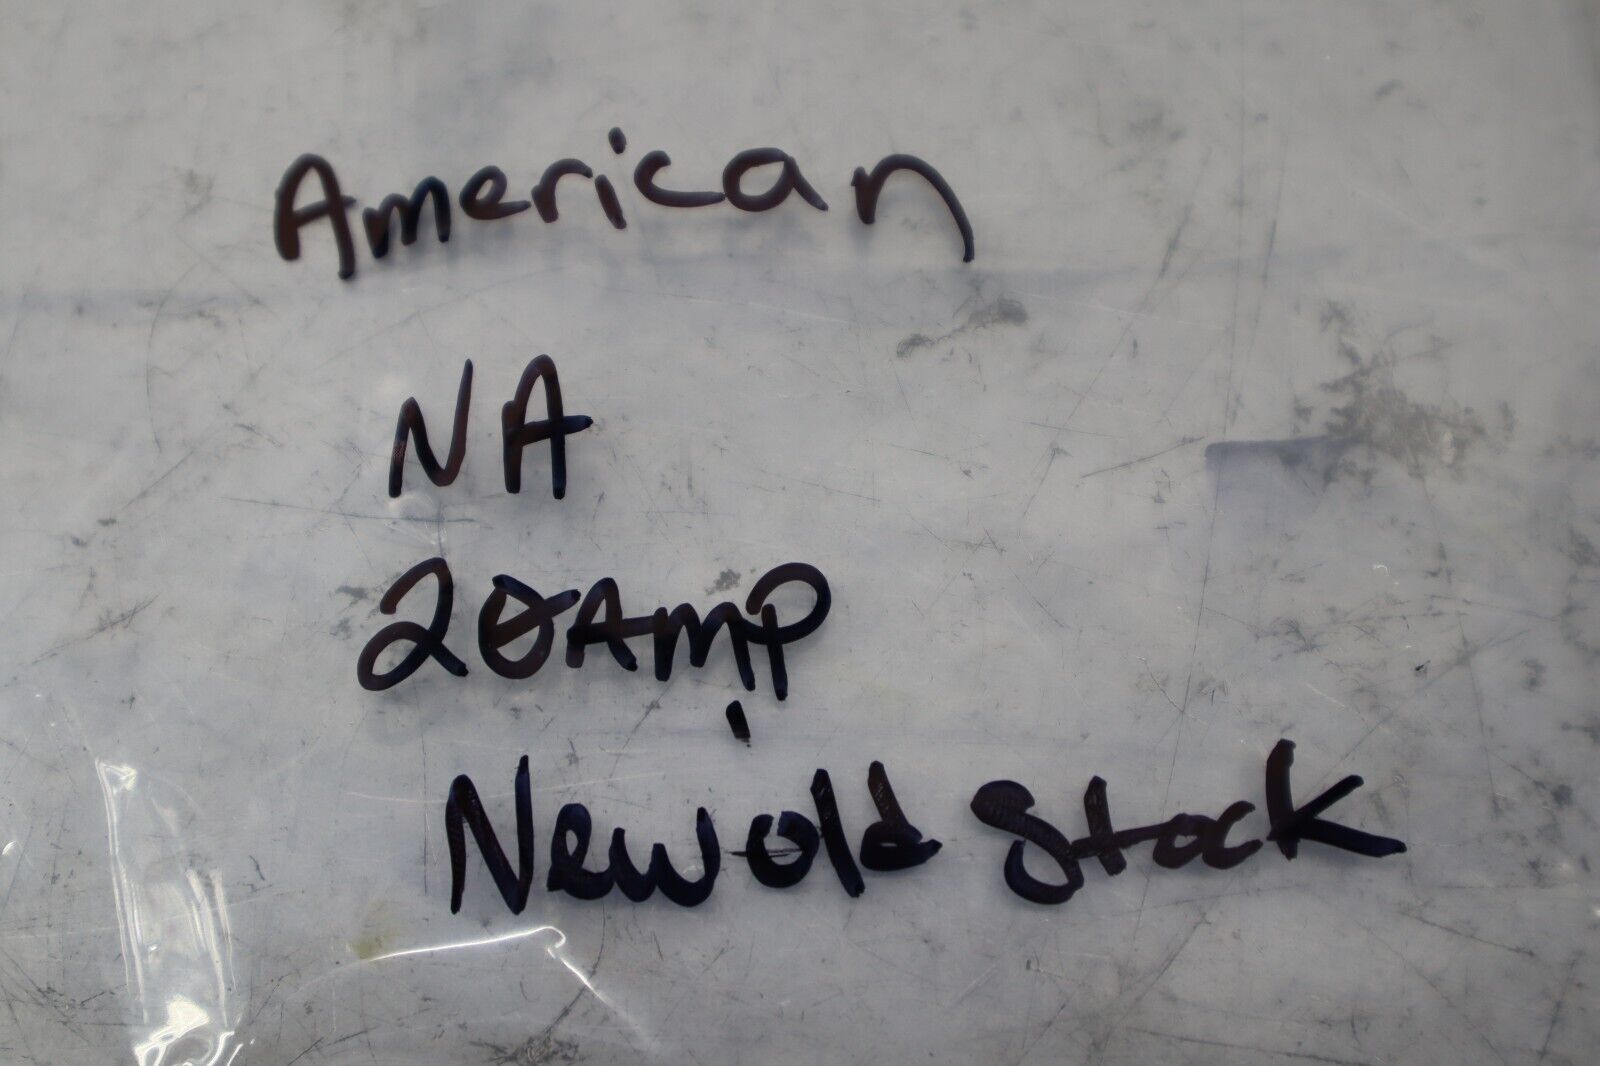 American
NA
20Amp
New old Stock